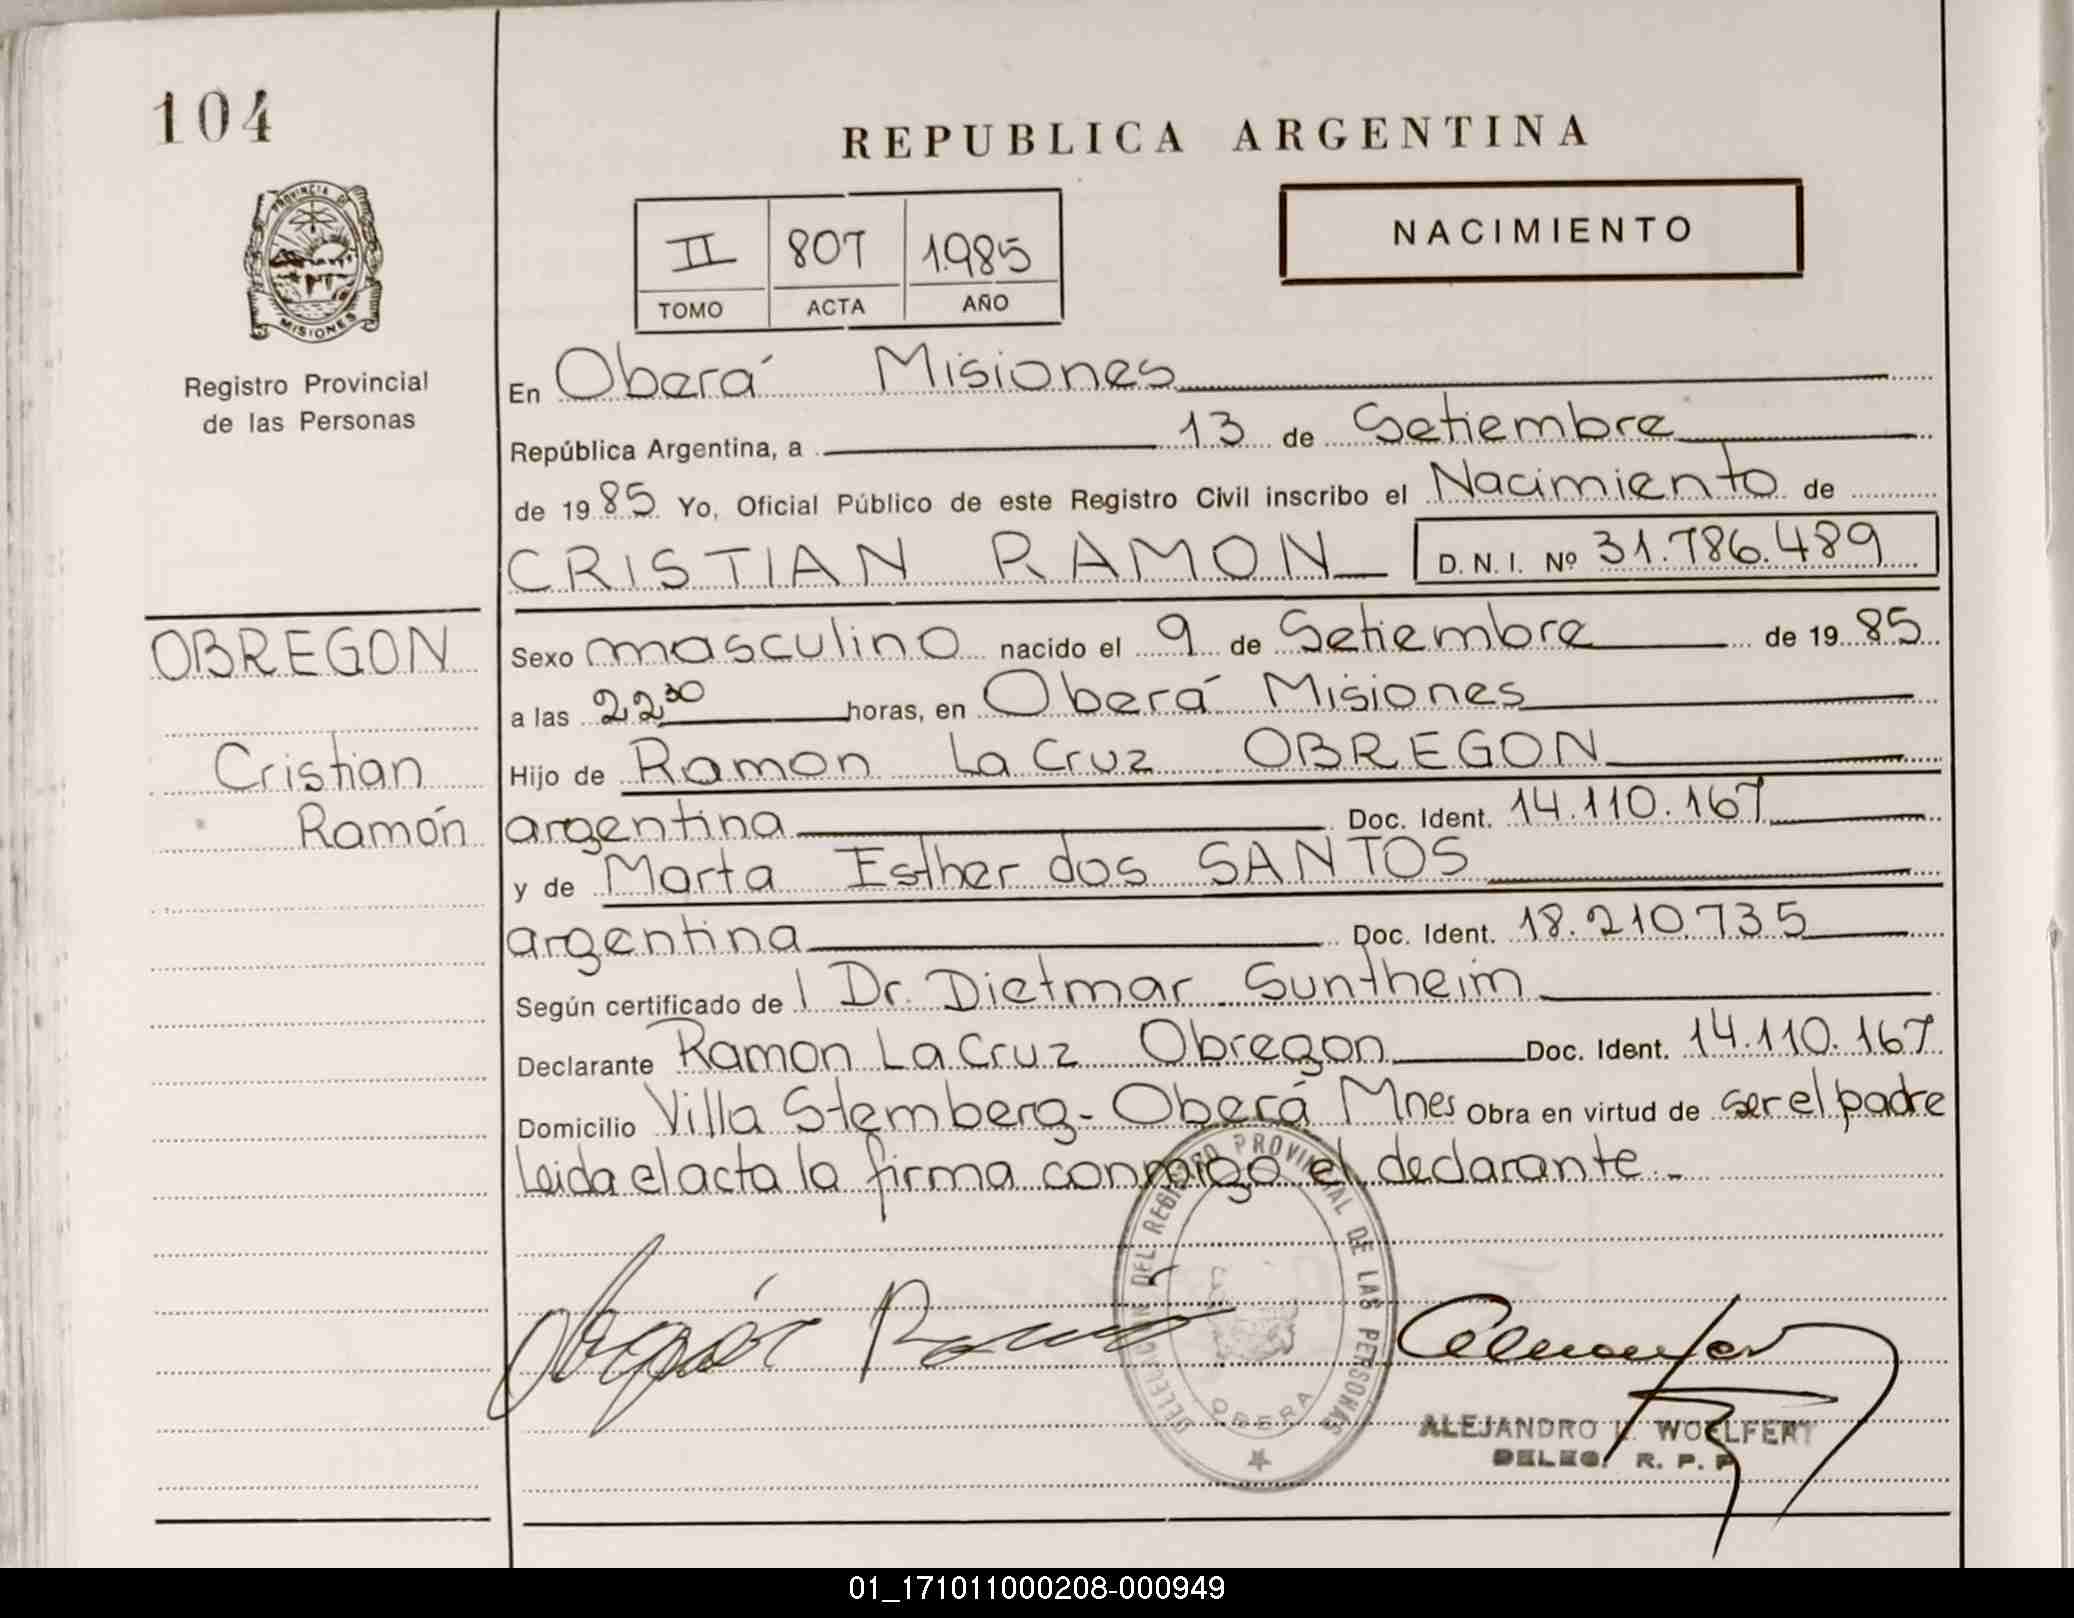 104
REPUBLICA ARGENTINA
PROVINCIA DE
MISIONES
NACIMIENTO
II 807 1985
TOMO ACTA AÑO
Registro Provincial
de las Personas
En Oberá Misiones
República Argentina, a 13 de Setiembre
de 1985 Yo, Oficial Público de este Registro Civil inscribo el Nacimiento de
CRISTIAN RAMON D.N.I. Nº 31.786.489
OBREGON
Cristian
Ramón
Sexo masculino nacido el 9 de Setiembre de 1985
a las 22 30 horas, en Oberá Misiones
Hijo de Ramon La Cruz OBREGON
argentina Doc. Ident. 14.110.167
y de Marta Esther dos SANTOS
argentina Doc. Ident. 18.210.735
Según certificado de l Dr. Dietmar Suntheim
Declarante Ramon La Cruz Obregon Doc. Ident. 14.110.167
Domicilio Villa Stemberg - Oberá Mnes Obra en virtud de ser el padre
Leida el acta la firma conmigo el declarante.-
DELEGACION DEL REGISTRO PROVINCIAL DE LAS PERSONAS
OBERA
Obregón Ramon
ALEJANDRO WOELFERT
DELEG. R. P. P.
01_171011000208-000949